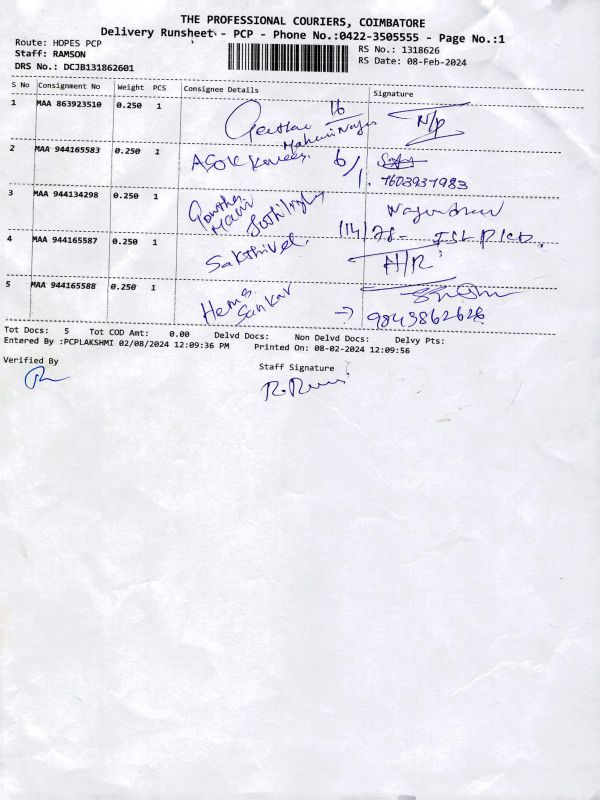 THE PROFESSIONAL COURIERS, COIMBATORE
Delivery Runsheet - PCP - Phone No.:0422-3505555 - Page No.:1
Route: HOPES PCP
RS No.: 1318626
Staff: RAMSON
RS Date: 08-Feb-2024
DRS No.: DCJB131862601
S No Consignment No Weight PCS Consignee Details Signature
1 MAA 863923510 0.250 1 16 N/P
2 MAA 944165583 0.250 1 ASOK 6/1. 7603937983
3 MAA 944134298 0.250 1
4 MAA 944165587 0.250 1 Sakthivel.
5 MAA 944165588 0.250 1 Hema Sankar → 9843862626
Tot Docs: 5 Tot COD Amt: 0.00 Delvd Docs: Non Delvd Docs: Delvy Pts:
Entered By :PCPLAKSHMI 02/08/2024 12:09:36 PM Printed On: 08-02-2024 12:09:56
Verified By
Staff Signature